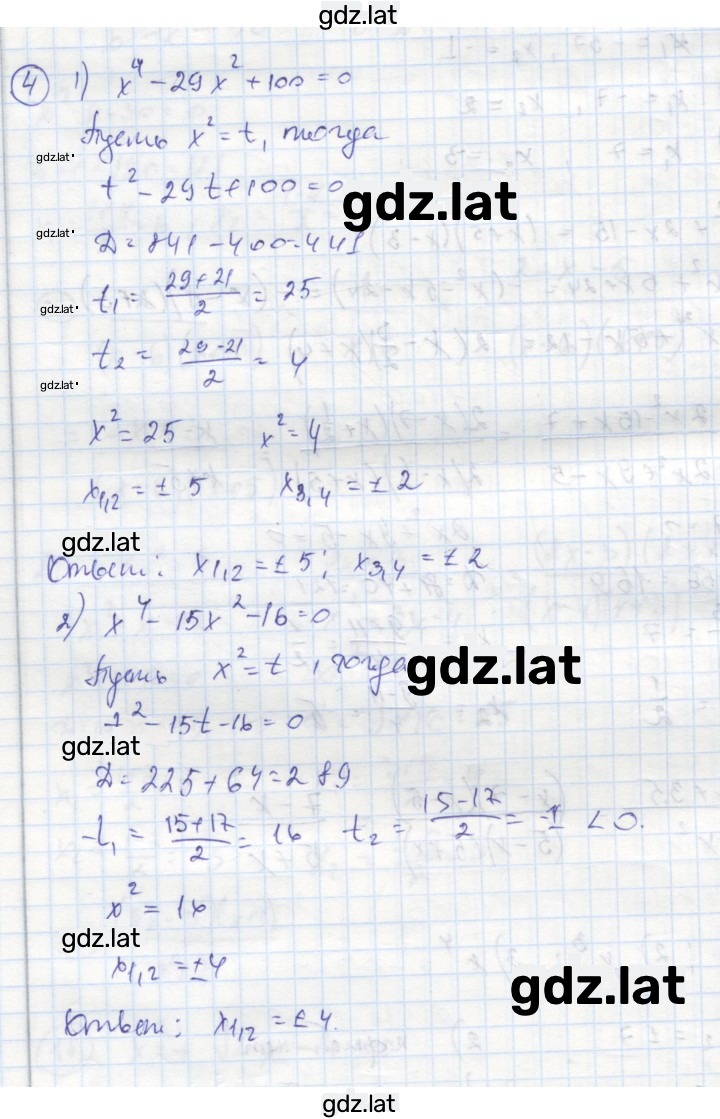 gdz.lat
4 1) x⁴ - 29x² + 100 = 0
Пусть x² = t, тогда
gdz.lat
t² - 29t + 100 = 0
gdz.lat
gdz.lat
D = 841 - 400 = 441
t₁ = (29+21)/2 = 25
gdz.lat
t₂ = (29-21)/2 = 4
gdz.lat
x² = 25 x² = 4
x₁,₂ = ± 5 x₃,₄ = ± 2
gdz.lat
Ответ: x₁,₂ = ± 5; x₃,₄ = ± 2
2) x⁴ - 15x² - 16 = 0
Пусть x² = t, тогда
gdz.lat
t² - 15t - 16 = 0
gdz.lat
D = 225 + 64 = 289
t₁ = (15+17)/2 = 16 t₂ = (15-17)/2 = -1 < 0.
x² = 16
gdz.lat
x₁,₂ = ±4
gdz.lat
Ответ: x₁,₂ = ± 4.
gdz.lat